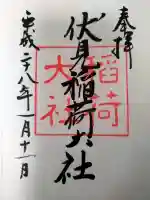 奉拝
伏見稲荷大社
稲荷
大社
平成二八年一月十一日